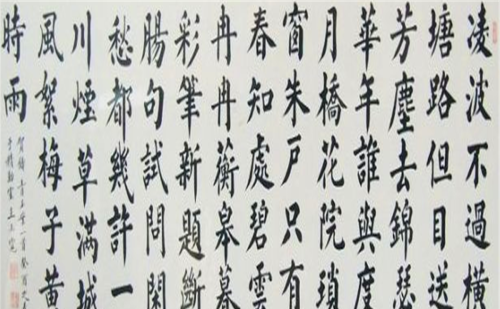 凌波不過橫
塘路但目送
芳塵去錦瑟
華年誰與度
月橋花院瑣
窗朱戶只有
春知處碧雲
冉冉蘅皋暮
彩筆新題斷
腸句試問閒
愁都幾許一
川煙草滿城
風絮梅子黃
時雨
賀鑄青玉案一首癸酉